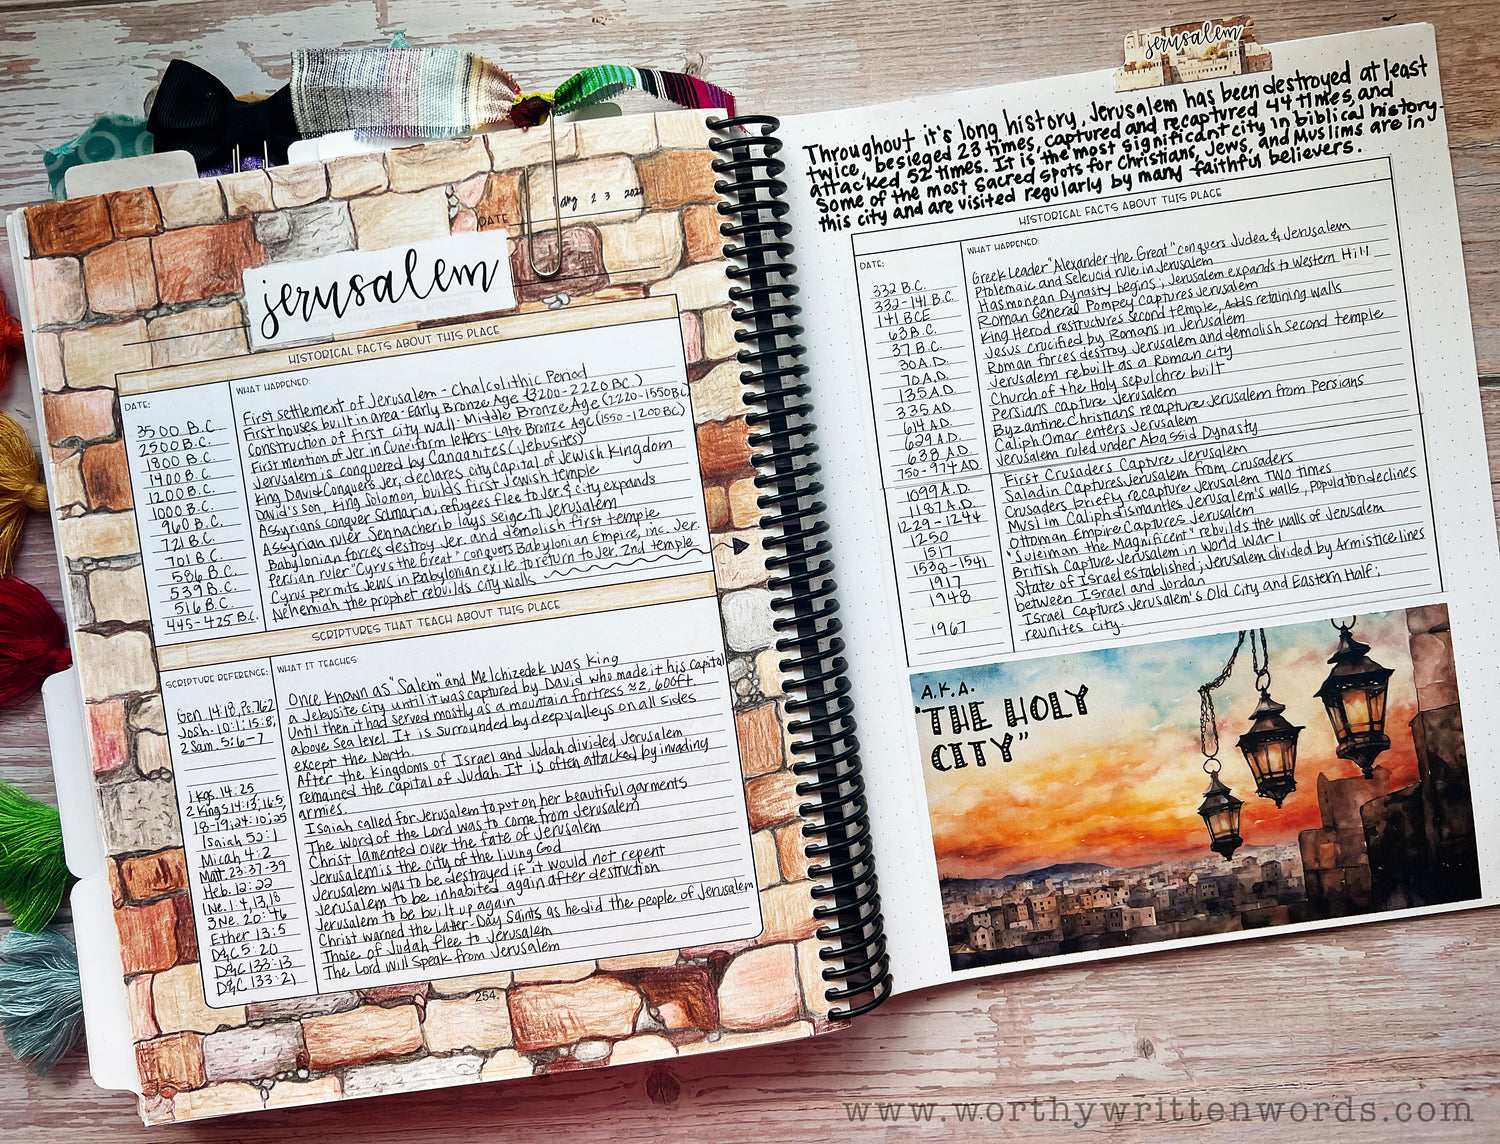 DATE
May 2 3 2024
jerusalem
HISTORICAL FACTS ABOUT THIS PLACE
DATE: WHAT HAPPENED:
3500 B.C. First settlement of Jerusalem - Chalcolithic Period
2500 B.C. First houses built in area - Early Bronze Age (3200-2220 BC.)
1800 B.C. Construction of first city wall - Middle Bronze Age (2220-1550BC)
1400 B.C. First mention of Jer. in Cuneiform letters - Late Bronze Age (1550-1200 BC)
1200 B.C. Jerusalem is conquered by Canaanites (Jebusites)
1000 B.C. King David Conquers Jer, declares city capital of Jewish Kingdom
960 B.C. David's son, King Solomon, builds first Jewish temple
721 B.C. Assyrians conquer Samaria, refugees flee to Jer. & city expands
701 B.C. Assyrian ruler Sennacherib lays seige to Jerusalem
586 B.C. Babylonian forces destroy Jer. and demolish first temple
539 B.C. Persian ruler "Cyrus the Great" conquers Babylonian Empire, inc. Jer.
516 B.C. Cyrus permits Jews in Babylonian exile to return to Jer. 2nd temple
445-425 B.C. Nehemiah the prophet rebuilds city walls
SCRIPTURES THAT TEACH ABOUT THIS PLACE
SCRIPTURE REFERENCE: WHAT IT TEACHES:
Gen. 14:18, Ps. 76:2 Once known as "Salem" and Melchizedek was King
Josh. 10:1; 15:8; a Jebusite City until it was captured by David who made it his Capital
2 Sam. 5:6-7 Until then it had served mostly as a mountain fortress ≈2,600ft
above Sea level. It is surrounded by deep valleys on all sides
except the North.
1 Kgs. 14:25 After the Kingdoms of Israel and Judah divided Jerusalem
2 Kings 14:13; 16:5; remained the capital of Judah. It is often attacked by invading
18-19; 24:10; 25 armies.
Isaiah 52:1 Isaiah called for Jerusalem to put on her beautiful garments
Micah 4:2 The word of the Lord was to come from Jerusalem
Matt. 23:37-39 Christ lamented over the fate of Jerusalem
Heb. 12:22 Jerusalem is the city of the living God
1 Ne. 1:4,13,18 Jerusalem was to be destroyed if it would not repent
3 Ne. 20:46 Jerusalem to be inhabited again after destruction
Ether 13:5 Jerusalem to be built up again
D&C 5:20 Christ warned the Latter-Day Saints as he did the people of Jerusalem
D&C 133:13 Those of Judah flee to Jerusalem
D&C 133:21 The Lord will speak from Jerusalem
254.
jerusalem
Throughout it's long history, Jerusalem has been destroyed at least
twice, besieged 23 times, captured and recaptured 44 times, and
attacked 52 times. It is the most significant city in biblical history.
Some of the most sacred spots for Christians, Jews, and Muslims are in
this city and are visited regularly by many faithful believers.
HISTORICAL FACTS ABOUT THIS PLACE
DATE: WHAT HAPPENED:
332 B.C. Greek Leader "Alexander the Great" conquers Judea & Jerusalem
332-141 B.C. Ptolemaic and Seleucid rule in Jerusalem
141 BCE Hasmonean Dynasty begins; Jerusalem expands to Western Hill
63 B.C. Roman General Pompey Captures Jerusalem
37 B.C. King Herod restructures Second temple, Adds retaining walls
30 A.D. Jesus crucified by Romans in Jerusalem
70 A.D. Roman forces destroy Jerusalem and demolish Second temple
135 A.D. Jerusalem rebuilt as a Roman city
335 A.D. Church of the Holy Sepulchre built
614 A.D. Persians capture Jerusalem
629 A.D. Byzantine Christians recapture Jerusalem from Persians
638 A.D. Caliph Omar enters Jerusalem
750-974 AD. Jerusalem ruled under Abassid Dynasty
1099 A.D. First Crusaders Capture Jerusalem
1187 A.D. Saladin Captures Jerusalem from crusaders
1229-1244 Crusaders briefly recapture Jerusalem two times
1250 Muslim Caliph dismantles Jerusalem's walls, Population declines
1517 Ottoman Empire Captures Jerusalem
1538-1541 "Suleiman the Magnificent" rebuilds the walls of Jerusalem
1917 British Capture Jerusalem in World War 1
1948 State of Israel established; Jerusalem divided by Armistice lines
between Israel and Jordan
1967 Israel Captures Jerusalem's Old City and Eastern Half;
reunites city.
A.K.A.
"THE HOLY
CITY"
www.worthywrittenwords.com